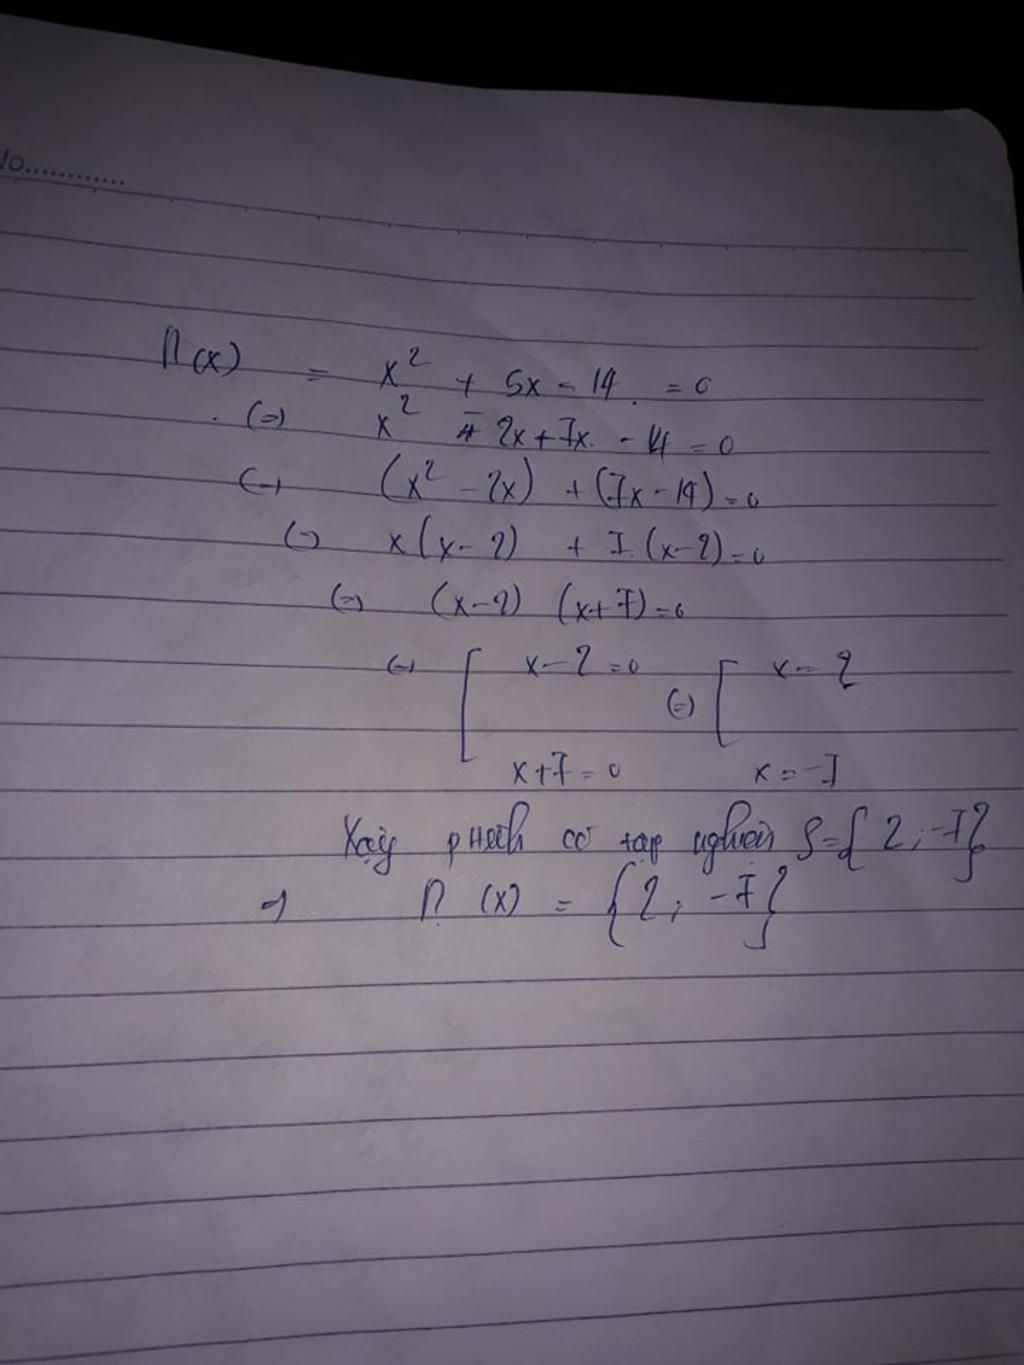 No............
П(x) = x² + 5x - 14 = 0
(=) x² - 2x + 7x - 14 = 0
(=) (x² - 2x) + (7x - 14) = 0
(=) x(x - 2) + 7.(x - 2) = 0
(=) (x - 2) (x + 7) = 0
(=) [ x - 2 = 0 (=) [ x = 2
x + 7 = 0 x = -7
có tập nghiệm S = { 2 ; -7 }
=> П(x) = { 2 ; -7 }